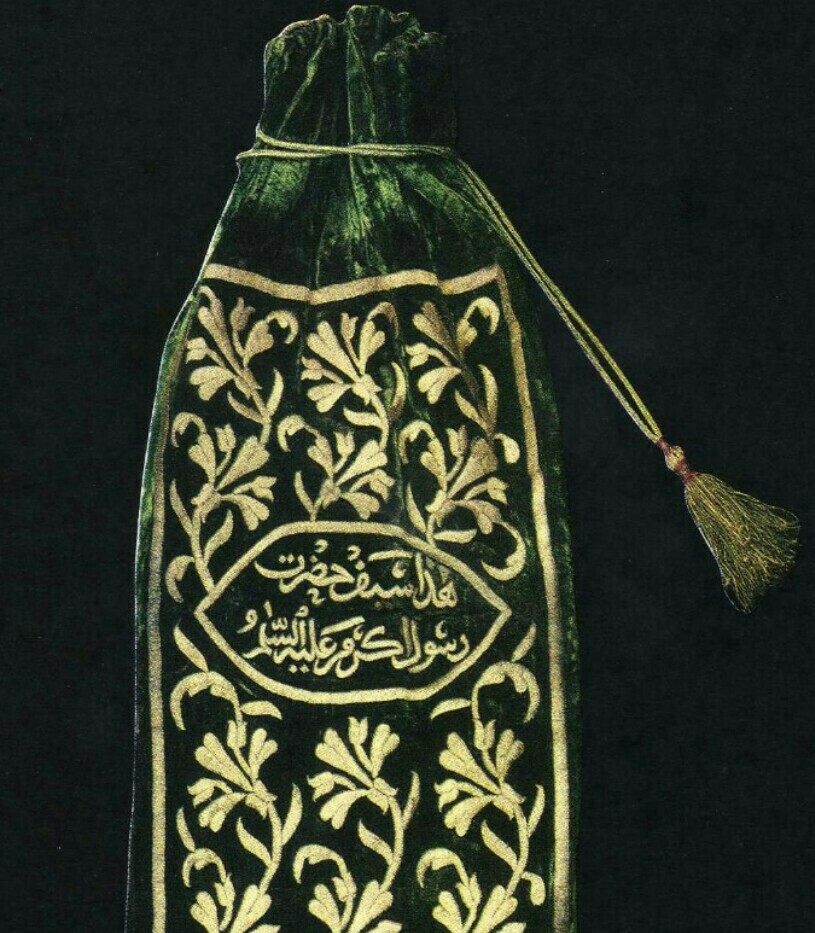 هذا سيف حضرت
رسول اكرم عليه السلام